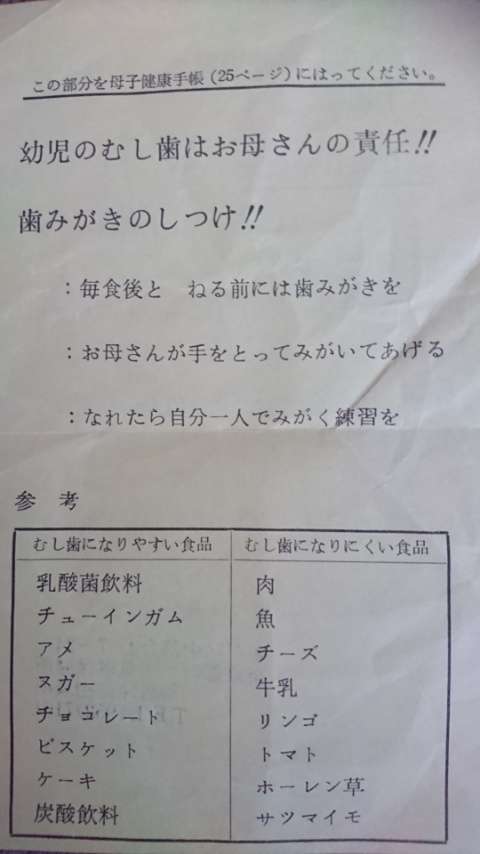 この部分を母子健康手帳(25ページ)にはってください。
幼児のむし歯はお母さんの責任!!
歯みがきのしつけ!!
:毎食後と ねる前には歯みがきを
:お母さんが手をとってみがいてあげる
:なれたら自分一人でみがく練習を
参 考
むし歯になりやすい食品 むし歯になりにくい食品
乳酸菌飲料 肉
チューインガム 魚
アメ チーズ
ヌガー 牛乳
チョコレート リンゴ
ビスケット トマト
ケーキ ホーレン草
炭酸飲料 サツマイモ